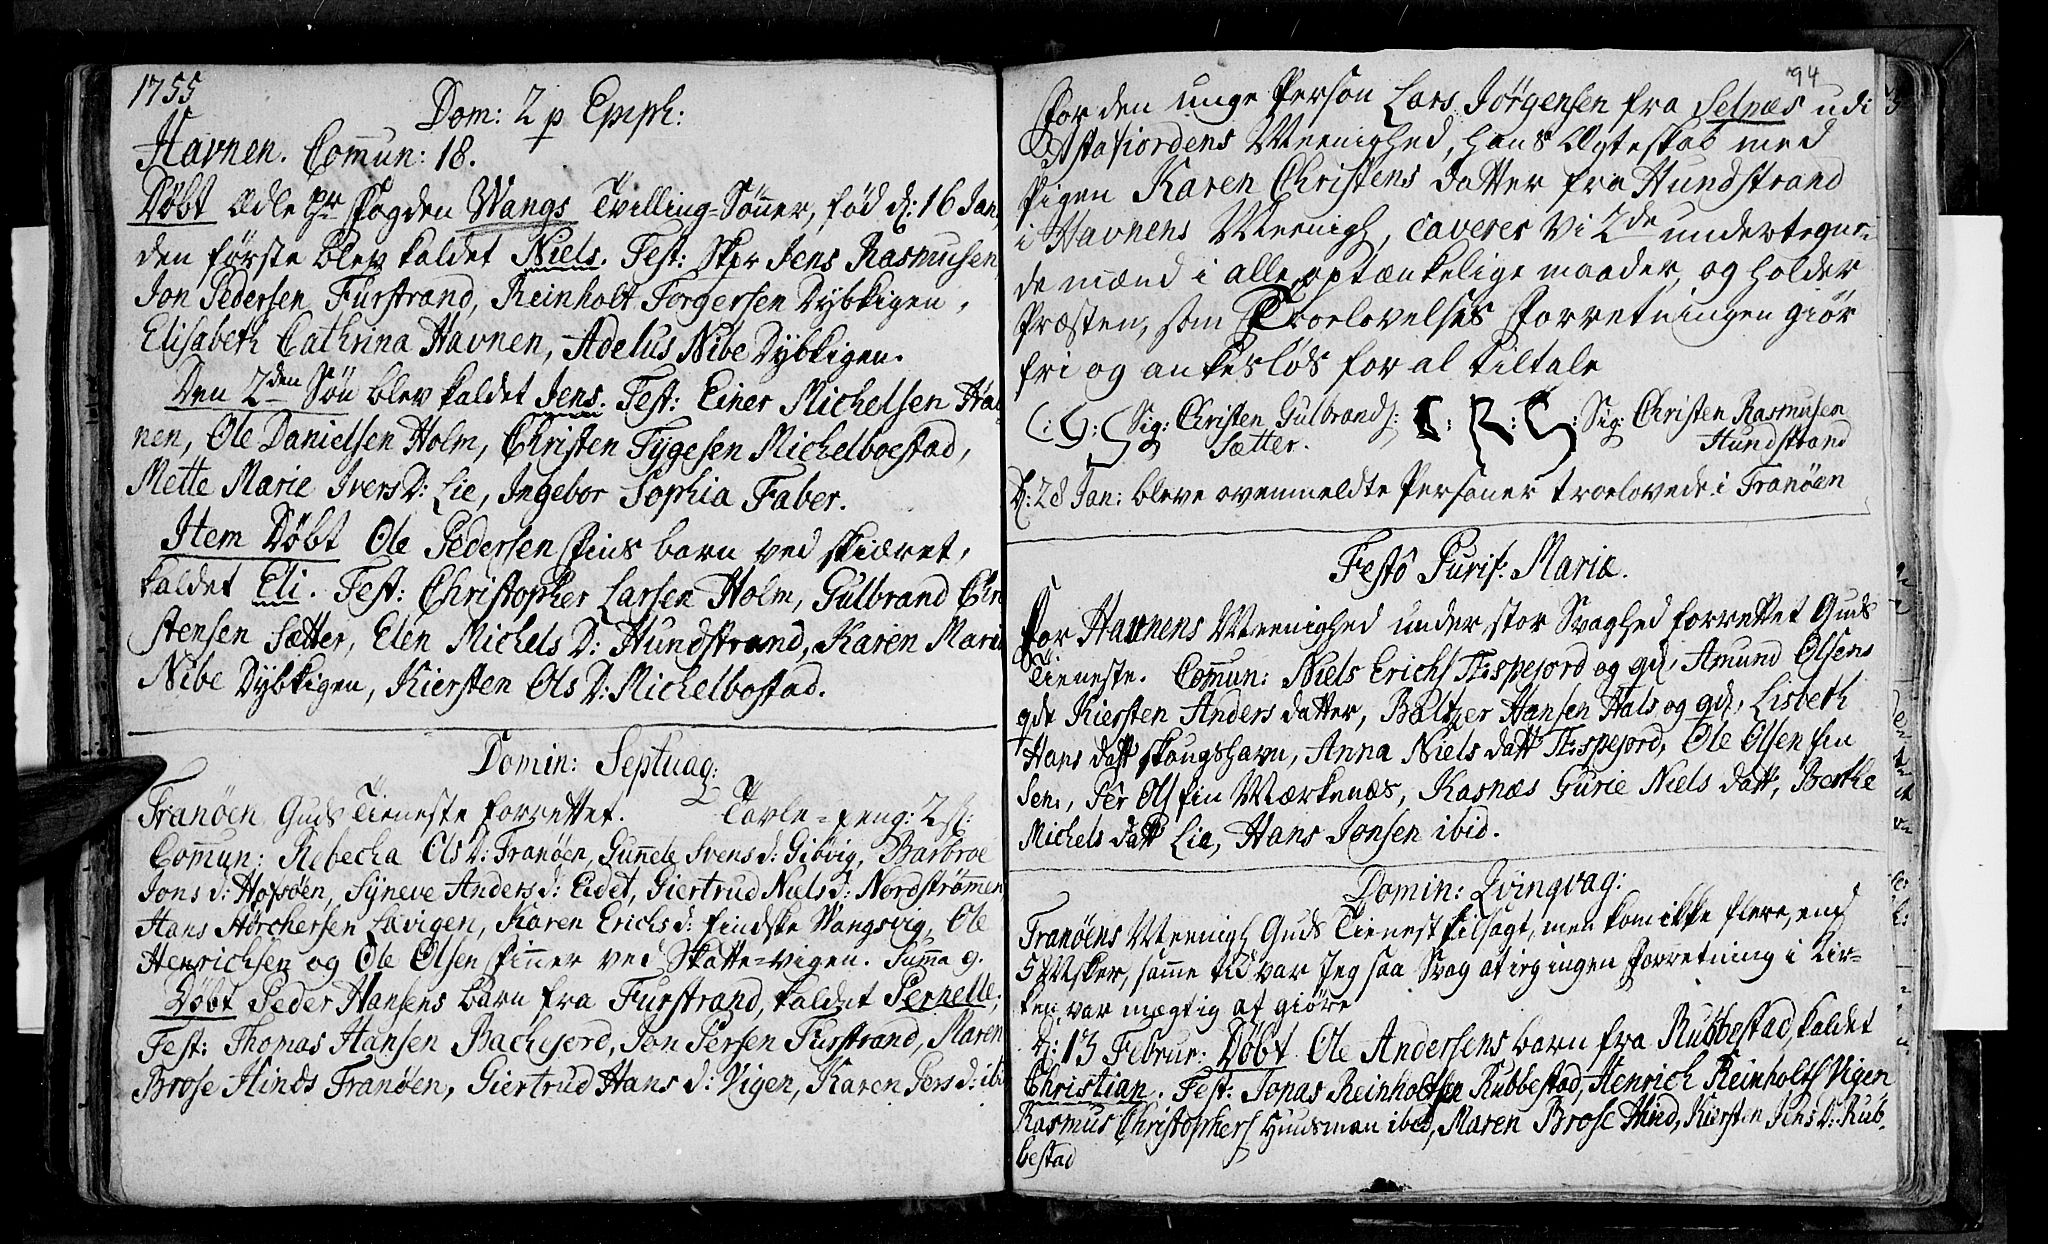 1755
Dom: 2 p Epiph:
Havnen. Comun: 18.
Døbt Ædle Hr Fogden Wangs Tvilling-Sønner, fød d: 16 Jan,
den første blev kaldet Niels. Test: Skpr Jens Rasmusen,
Jon Pedersen Furstrand, Reinholt Torgersen Dybkigen,
Elisabeth Cathrina Havnen, Adelus Nibe Dybkigen.
Den 2den Søn blev kaldet Jens. Test: Einer Michelsen Hav
nen, Ole Danielsen Holm, Christen Tygesen Michelboestad,
Mette Marie Ivers D: Lie, Ingebor Sophia Faber.
Item Døbt Ole Pedersen Fins barn ved skiæret,
kaldet Eli. Test: Christopher Larsen Holm, Gulbrand Chri
stensen Sætter, Elen Michels D: Hundstrand, Karen Marie
Nibe Dybkigen, Kiersten Ols D: Michelbostad.
Domin: Septuag:
Tranøen Guds Tieneste forrettet. Tavle-peng: 2 s:
Comun: Rebecha Ols D: Tranøen, Gunnele Svens d: Gibvig, Barbroe
Jons d: Hofsøen, Syneve Anders d: Eidet, Giertrud Niels d: Nordstrømen,
Hans Hørchersen Lævigen, Karen Erichs d: findske Vangsvig, Ole
Henrichsen og Ole Olsen Finner ved Skatte-vigen. Suma 9.
Døbt Peder Hansens barn fra Furstrand, kaldet Pernelle;
Test: Thomas Hansen Bachejord, Jon Persen Furstrand, Maren
Brose Hinds Tranøen, Giertrud Hans d: Vigen, Karen Pers d: ibid
94
For den unge Person Lars Jørgensen fra Selnæs udi
Astafiordens Meenighed, hans Ægteskab med
Pigen Karen Christens datter fra Hundstrand
i Havnens Meenigh, caveres vi 2de underteg­ne-
de mænd i alle optænkelige maader, og holder
Præsten, som Troelovelses Forretningen giør
fri og ankesløs for al tiltale
C: G: S Sig: Christen Gulbrands: C: R: S: Sig: Christen Rasmusen
Sætter. Hundstrand
D: 28 Jan: bleve ovenmeldte Personer troelovede i Tranøen
Festô Purif: Mariæ.
For Havnens Meenighed under stor Svaghed forrettet Guds
Tieneste. Comun: Niels Erichs Espejord og qd, Amund Olsens
qde Kiersten Anders datter, Baltzer Hansen Hals og qd, Lisbeth
Hans datt skougshavn, Anna Niels datt Espejord, Ole Olsen fin
Sen, Per Ols fin Mærkenæs, Kasnæs Gurie Niels datt, Berthe
Michels datt Lie, Hans Jonsen ibid.
Domin: Qvinqvag:
Tranøens Meenigh Guds Tienest tilsagt, men kom ikke flere, end
5 Mskr, samme tid var Jeg saa svag at ieg ingen Forretning i Kir-
ken var mægtig at giøre
D: 13 Februr: Døbt Ole Andersens barn fra Rubbestad, kaldet
Christian. Test: Jonas Reinholtsen Rubbestad, Henrich Reinholts Vigen
Rasmus Christophers Huusman ibid, Maren Brose Hind, Kiersten Jens D: Rub-
bestad